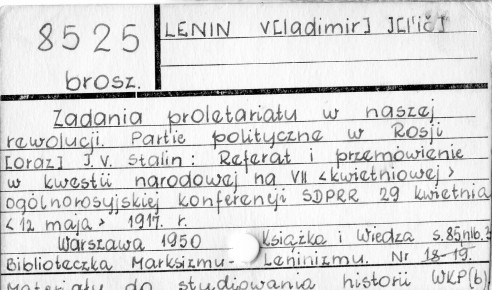 8525
brosz.
LENIN V[ladimir] I[l'ič]
Zadania proletariatu w naszej
rewolucji. Partie polityczne w Rosji
[oraz] J.V. Stalin: Referat i przemówienie
w kwestii narodowej na VII <kwietniowej>
ogólnorosyjskiej konferencji SDPRR 29 kwietnia
<12 maja> 1917. r.
Warszawa 1950 Książka i Wiedza s.85,nlb.3
Biblioteczka Marksizmu-Leninizmu. Nr 18-19.
Materiały do studiowania historii WKP(b)